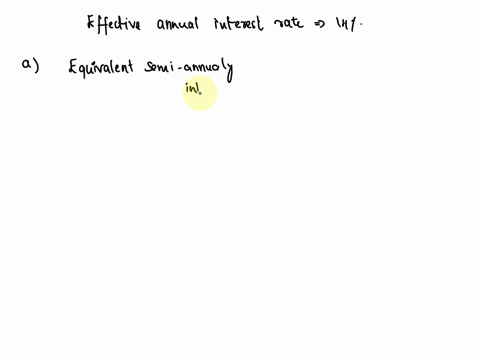 Effective annual interest rate ⇒ 14%.
a) Equivalent semi-annualy
int